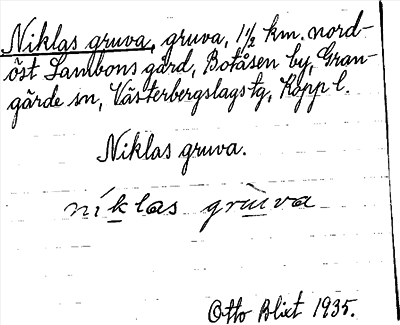 Niklas gruva, gruva, 1½ km. nord-
öst Lambons gård, Botåsen by, Gran-
gärde sn, Västerbergslags tg, Kopp l.
Niklas gruva.
níklas grùva
Otto Blixt 1935.